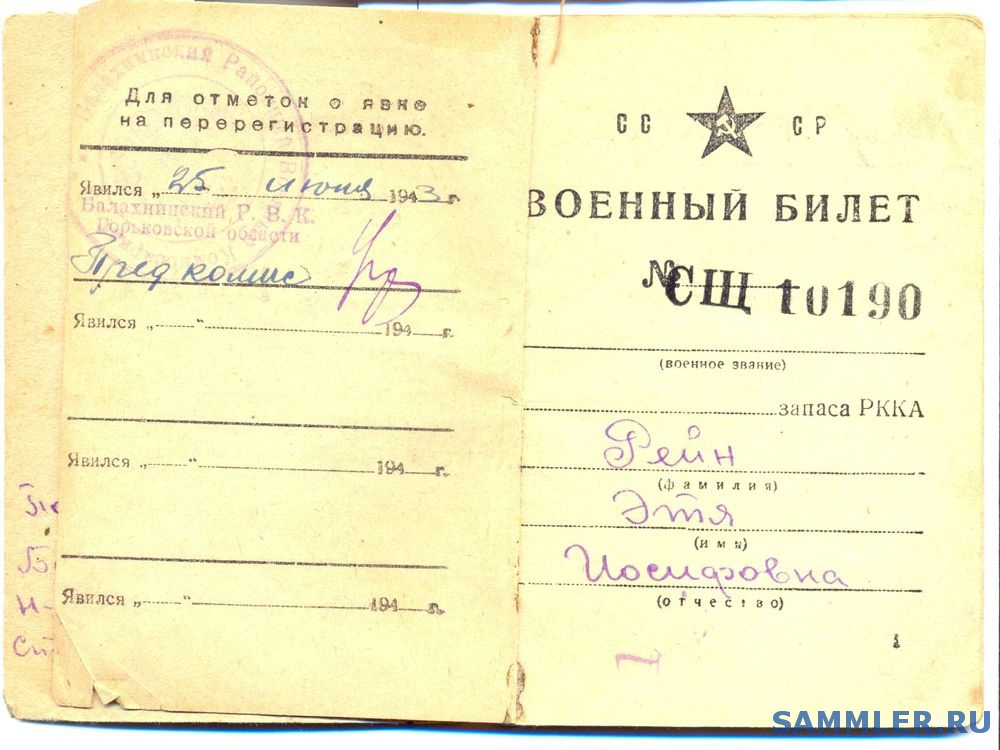 Для отметок о явке
на перерегистрацию.
Явился „25 июня 1943 г.
Балахнинский Р. В. К.
Горьковской области
Пред комис
Явился „ “ 194 г.
Явился „ “ 194 г.
Явился „ “ 194 г.
СС СР
ВОЕННЫЙ БИЛЕТ
№ СЩ 10190
(военное звание)
запаса РККА
Рейн
(фамилия)
Этя
(имя)
Иосифовна
(отчество)
1
SAMMLER.RU